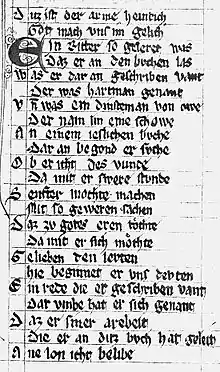 Ditz ist der arme heinrich
Got mach uns im gelich
Ein Ritter so geleret was
Daz er an den buchen las
Was er dar an geschriben vant
Der was hartman genant
Vn̄ was ein dinstman von owe
Der nam im eine schowe
An einem ieslichen buche
Dar an begond er suche
Ob er icht des vunde
Da mit er swere stunde
Senfter mochte machen
Mit so gewern sachen
Daz zu gotes eren tochte
Da mit er sich mochte
Gelieben den levten
hie beginnet er uns devten
Ein rede die er geschriben vant
Dar vmbe hat er sich genant
Daz er siner arebeit
Die er an ditz buch hat geleit
Ane lon icht belibe